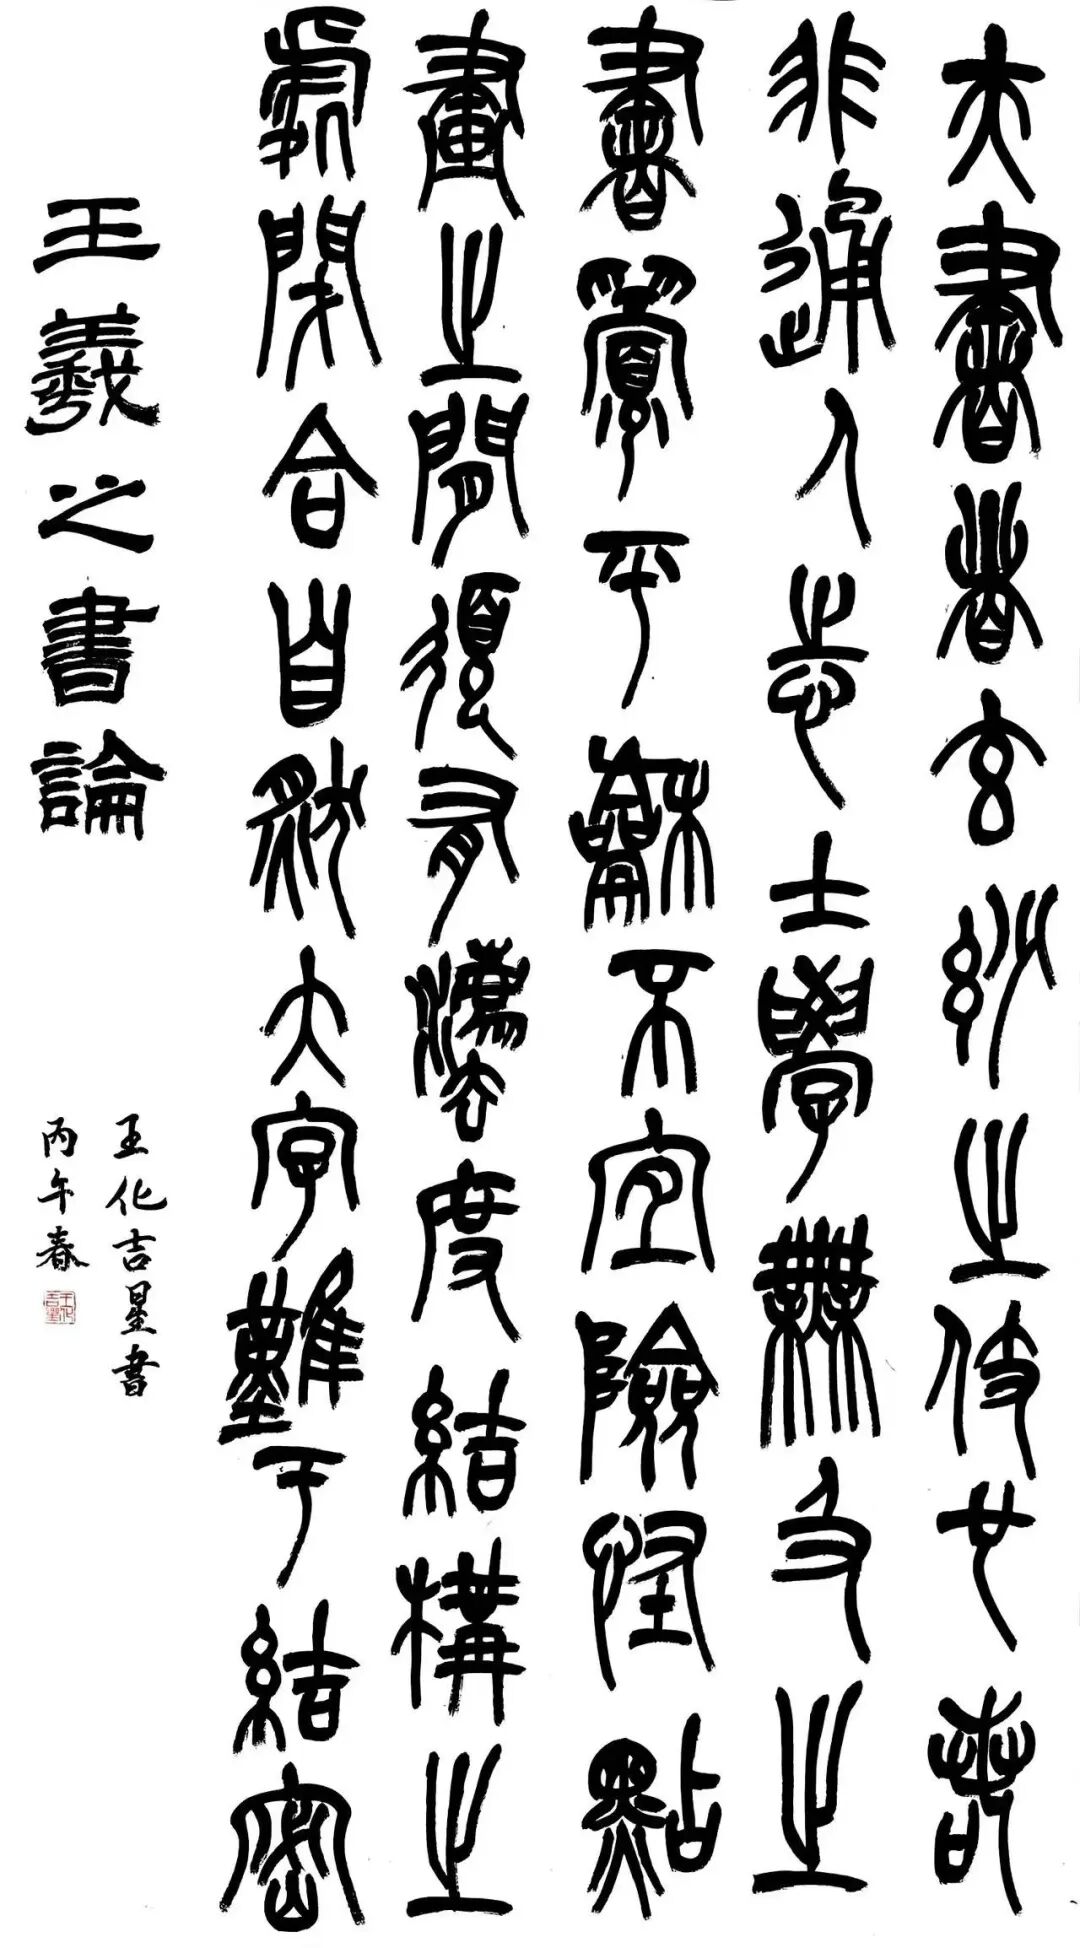 夫書者玄妙之伎也若
非通人志士學無及之
書平龢不宜險怪點
畫之間須有灋度結構之
處閉合自然大字難于結密
王羲之書論
王化吉星書
丙午春